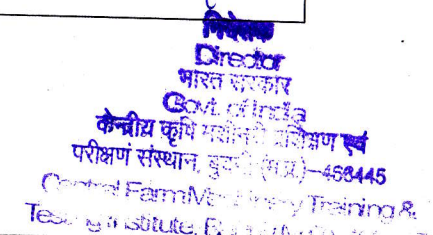 निदेशक
Director
भारत सरकार
Govt. of India
केन्द्रीय कृषि मशीनरी प्रशिक्षण एवं
परीक्षण संस्थान, बुदनी (म.प्र.)–466445
Central Farm Machinery Training &
Testing Institute,